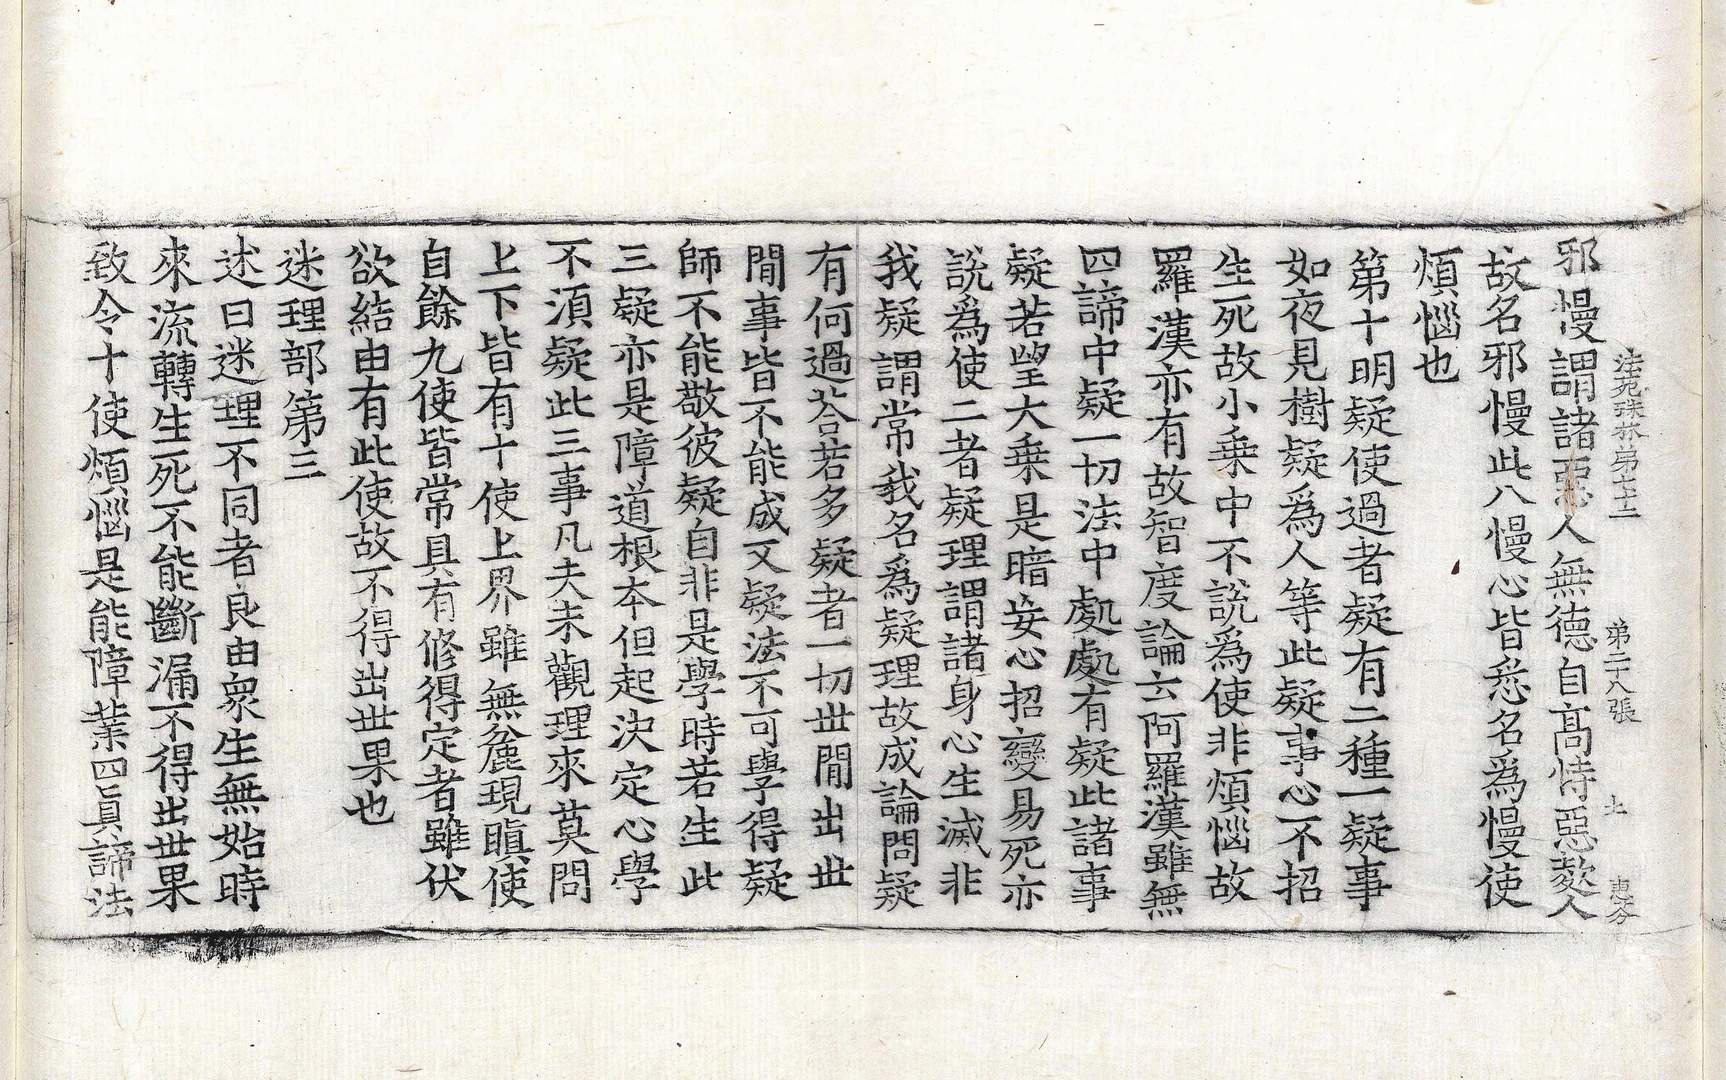 法苑珠林第七十二 第二十八張 尢 惠芬
邪慢謂諸惡人無德自髙恃惡欺人
故名邪慢此八慢心皆悉名爲慢使
煩惱也
第十明疑使過者疑有二種一疑事
如夜見樹疑爲人等此疑事心不招
生死故小乗中不說爲使非煩惱故
羅漢亦有故智度論云阿羅漢雖無
四諦中疑一切法中處處有疑此諸事
疑若望大乗是暗妄心招變易死亦
說爲使二者疑理謂諸身心生滅非
我疑謂常我名爲疑理故成論問疑
有何過荅若多疑者一切世閒出世
閒事皆不能成又疑法不可學得疑
師不能敬彼疑自非是學時若生此
三疑亦是障道根本但起決定心學
不須疑此三事凡夫未觀理來莫問
上下皆有十使上界雖無麁現瞋使
自餘九使皆常具有修得定者雖伏
欲結由有此使故不得出世果也
迷理部第三
述曰迷理不同者良由衆生無始時
來流轉生死不能斷漏不得出世果
致令十使煩惱是能障業四眞諦法